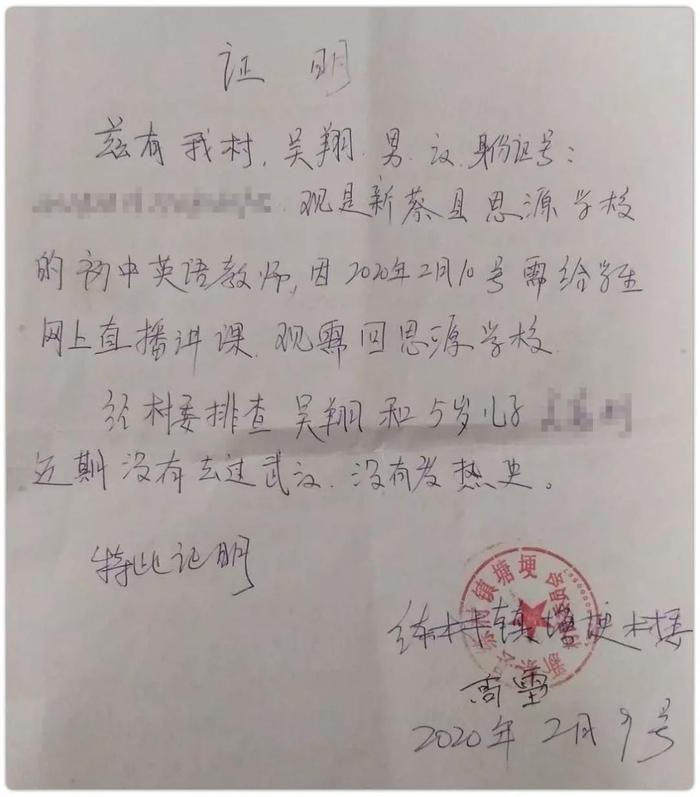 证 明
兹有我村，吴翔.男.汉.身份证号：
现是新蔡县思源学校
的初中英语教师，因2020年2月10号需给学生
网上直播讲课.现需回思源学校.
经村委排查吴翔和5岁儿子
近期没有去过武汉.没有发热史。
特此证明
镇塘埂
新蔡
委员会
镇塘埂村委
2020年2月9号